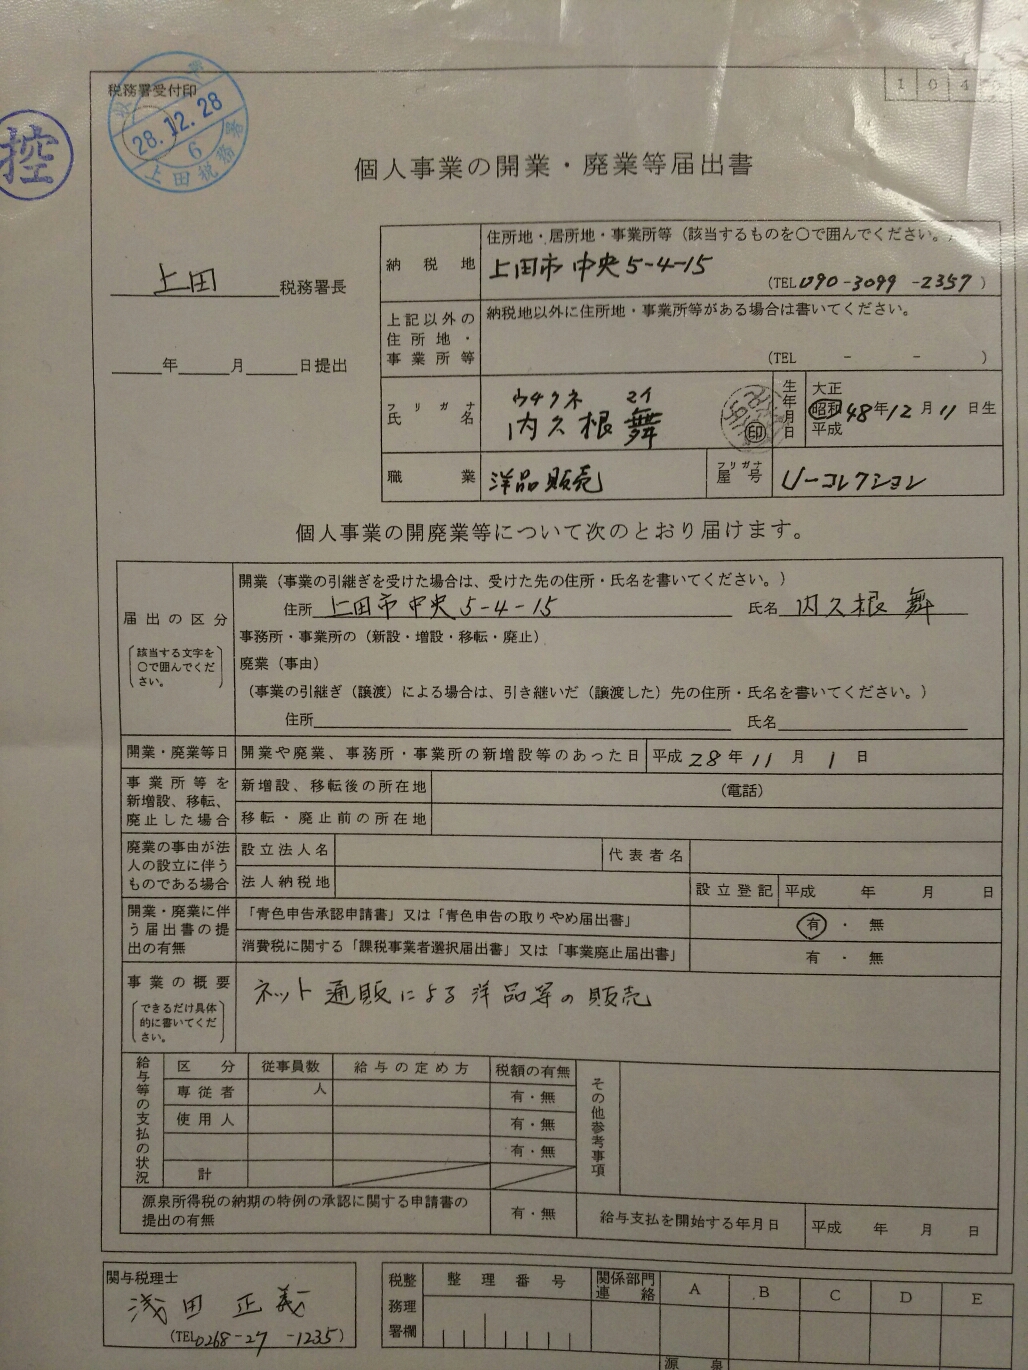 税務署受付印
収 受
28.12.28
6
上田税務署
控
1 0 4
個人事業の開業・廃業等届出書
上田 税務署長
年 月 日提出
納税地
住所地・居所地・事業所等（該当するものを○で囲んでください。）
上田市中央5-4-15
(TEL 090-3099-2357)
上記以外の住所地・事業所等
納税地以外に住所地・事業所等がある場合は書いてください。
(TEL - - )
フリガナ
氏名
ウチクネ マイ
内久根 舞
印
生年月日
大正
昭和 48年12月11日生
平成
職業
洋品販売
フリガナ
屋号
U-コレクション
個人事業の開廃業等について次のとおり届けます。
届出の区分
該当する文字を○で囲んでください。
開業（事業の引継ぎを受けた場合は、受けた先の住所・氏名を書いてください。）
住所 上田市中央5-4-15 氏名 内久根 舞
事務所・事業所の（新設・増設・移転・廃止）
廃業（事由）
（事業の引継ぎ（譲渡）による場合は、引き継いだ（譲渡した）先の住所・氏名を書いてください。）
住所 氏名
開業・廃業等日 開業や廃業、事務所・事業所の新増設等のあった日 平成28年11月1日
事業所等を新増設、移転、廃止した場合
新増設、移転後の所在地 （電話）
移転・廃止前の所在地
廃業の事由が法人の設立に伴うものである場合
設立法人名 代表者名
法人納税地 設立登記 平成 年 月 日
開業・廃業に伴う届出書の提出の有無
「青色申告承認申請書」又は「青色申告の取りやめ届出書」 有・無
消費税に関する「課税事業者選択届出書」又は「事業廃止届出書」 有・無
事業の概要
できるだけ具体的に書いてください。
ネット通販による洋品等の販売
給与等の支払の状況
区分 従事員数 給与の定め方 税額の有無
専従者 人 有・無
使用人 有・無
有・無
計
その他参考事項
源泉所得税の納期の特例の承認に関する申請書の提出の有無 有・無 給与支払を開始する年月日 平成 年 月 日
関与税理士
浅田 正義
(TEL 0268-27-1235)
税務署整理欄
整理番号 関係部門連絡 A B C D E
源泉